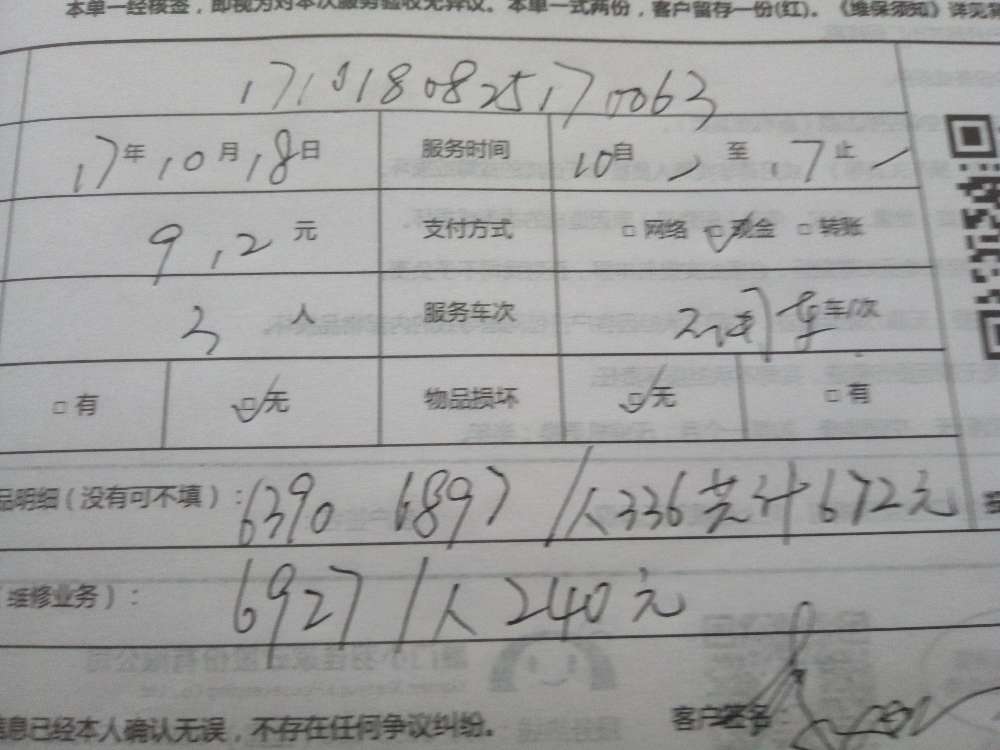 本单一经核签，即视为对本次服务验收无异议。本单一式两份，客户留存一份(红)。《维保须知》详见
1710180825170063
17年10月18日 服务时间 10自 至 17止
912元 支付方式 □网络 ☑现金 □转账
3人 服务车次 车/次
□有 ☑无 物品损坏 ☑无 □有
品明细（没有可不填）：6390 6897 /人336共计672元
维修业务）： 6927/人240元
信息已经本人确认无误，不存在任何争议纠纷。 客户签名：